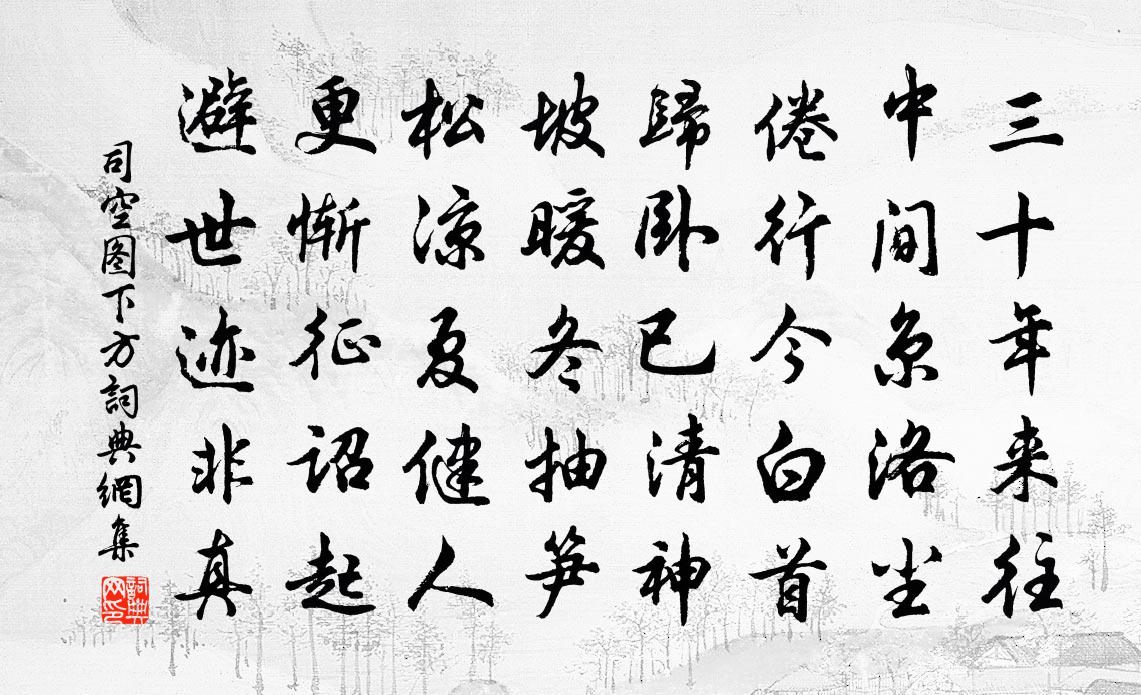 三十年来往
中间京洛尘
倦行今白首
歸卧已清神
坡暖冬抽笋
松凉夏健人
更慚征诏起
避世迹非真
司空图下方詞典網集
詞典网印